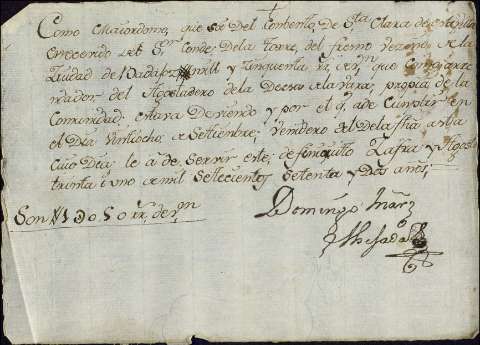 Como Maiordomo, que soi del Combento, de S.ta Clara de esta Villa
del S.or Conde, De la torre, del fresno vezino de la
Ciudad de Badajoz mill y zinquenta r.s de v.n que como
del Agostadero de la Deesa de la propia de la
Comunidad, estara Deviendo y por el q. a de Cumplir en
el Dia Veintiocho, de Settiembre, Venidero de la fha, asta
Cuio Dia, le a de Servir este, de finiquitto Zafra y Agosto
treinta i uno de mill Settecientos Settenta y Dos años,
Son 1 D 0 5 0 r.s de v.n
Domingo Mar.z
Quesada